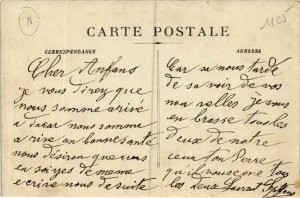 N
1105
CARTE POSTALE
CORRESPONDANCE
ADRESSE
Cher Anfans
je vous direz que
nous somme arivé
a dacar nous somme
a rivé an bonne santé
nous désiron que vous
en soiyes de meme
e crivé nous de suite
Car sa nous tarde
de sa voir de vos
nou velles je vous
en brasse tous les
deux de notre
cœur ton Pere
qui vous eme tous
les deux Laurent